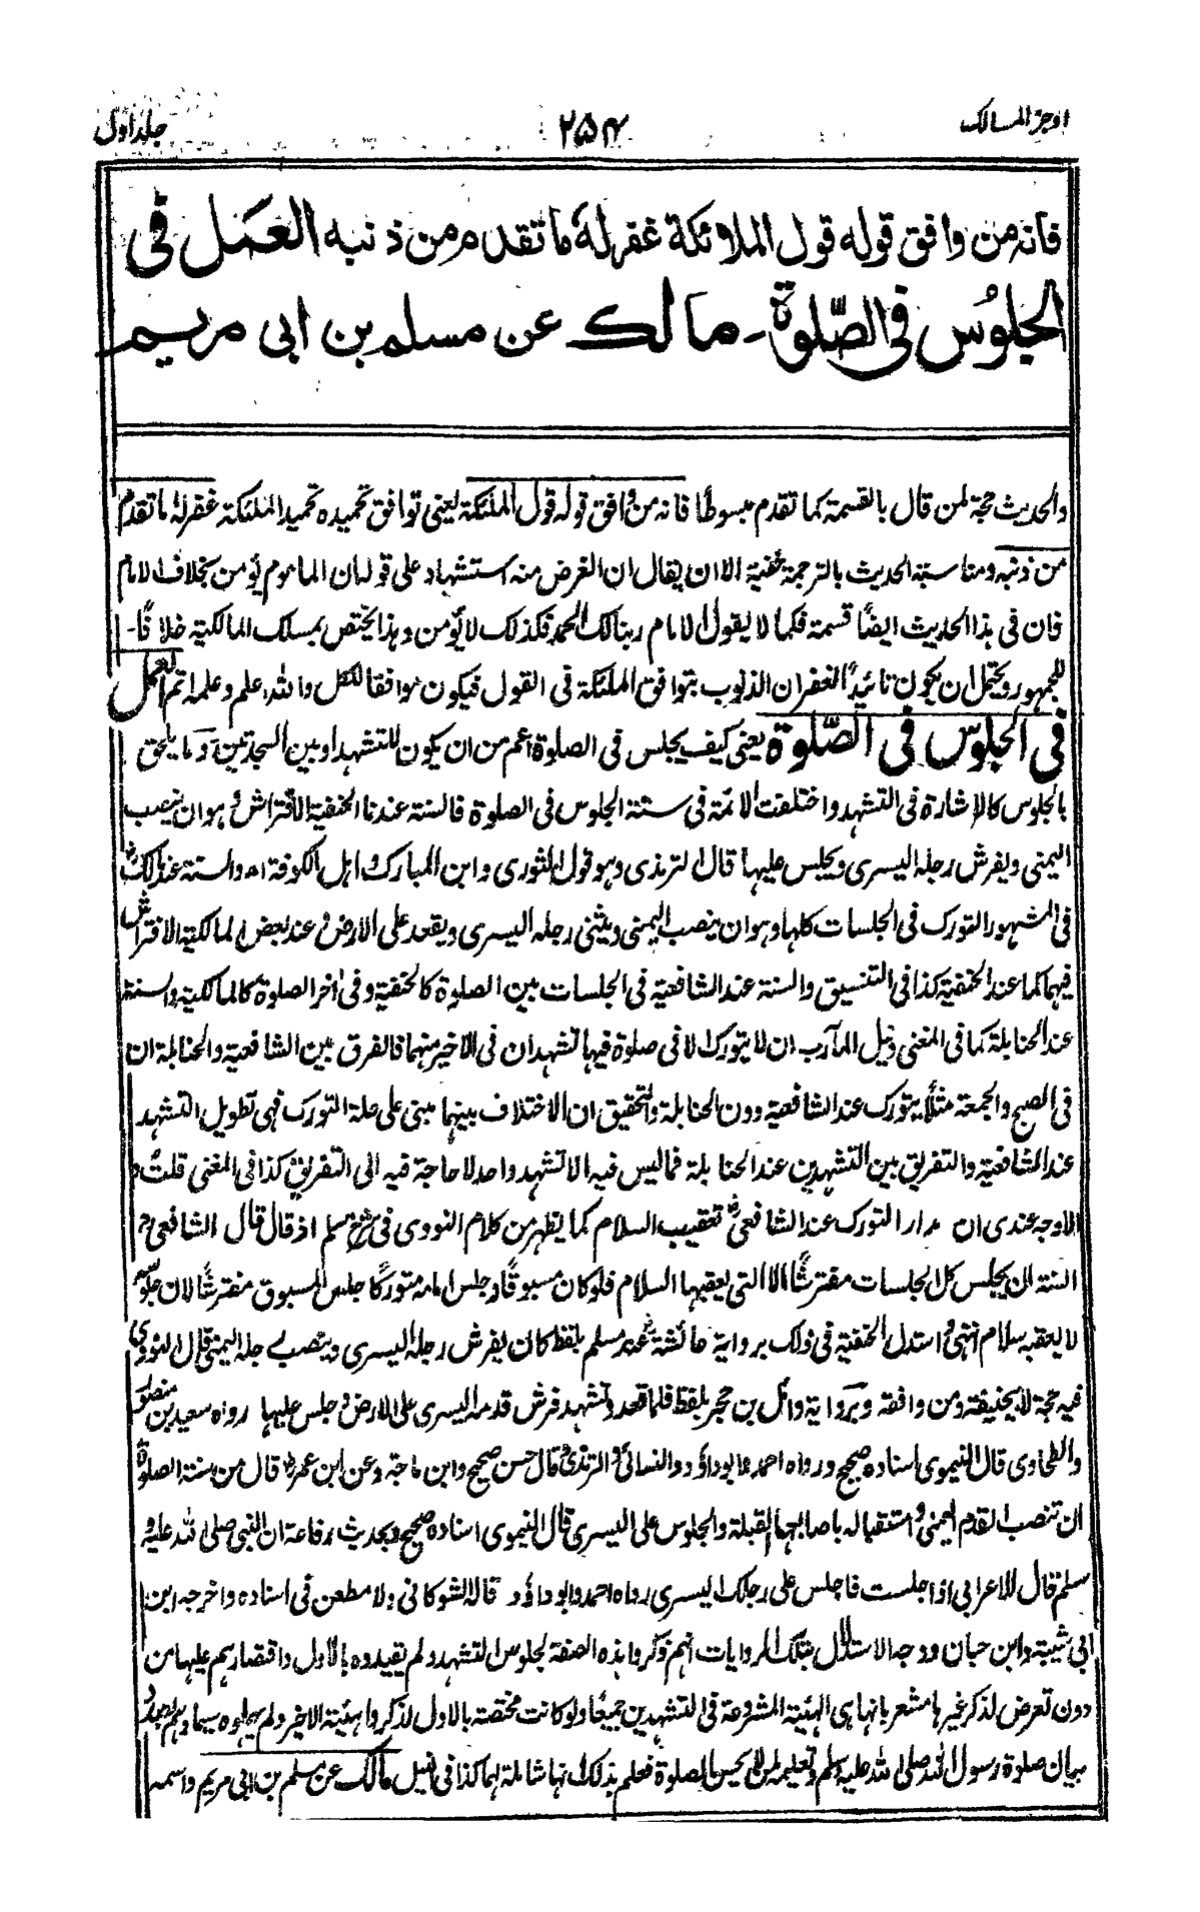 اوجز المسالک
۲۵۴
جلد اول
فانه من وافق قوله قول الملائكة غفرله ما تقدم من ذنبه العمل فى
الجلوس فى الصلوة ـ مالك عن مسلم بن ابى مريم
والحديث حجة لمن قال بالقسمة كما تقدم مبسوطا فانه من وافق قوله قول الملئكة يعنى توافق تحميده تحميد الملئكة غفرله ما تقدم
من ذنبه ومناسبة الحديث بالترجمة خفية الا ان يقال ان الغرض منه استشهاد على قوله ان الماموم يؤمن بخلاف الامام
فان فى هذا الحديث ايضًا قسمة فكما لا يقول الامام ربنا لك الحمد فكذلك لا يؤمن وهذا يختص بمسلك المالكية خلافًا ـ
للجمهور ويحتمل ان يكون تائيدًا لغفران الذنوب بتوافق الملئكة فى القول فيكون موافقا للكل والله اعلم وعلمه اتم العمل
فى الجلوس فى الصلوة يعنى كيف يجلس فى الصلوة اعم من ان يكون للتشهد او بين السجدتين وما يلحق
بالجلوس كالاشارة فى التشهد واختلفت الائمة فى سنة الجلوس فى الصلوة فالسنة عندنا الحنفية الافتراش وهو ان ينصب
اليمنى ويفرش رجله اليسرى ويجلس عليها قال الترمذى وهو قول الثورى وابن المبارك واهل الكوفة اه والسنة عند مالك
فى المشهور التورك فى الجلسات كلها وهو ان ينصب اليمنى ويثنى رجله اليسرى ويقعد على الارض وعند بعض المالكية الافتراش
فيهما كما عند الحنفية كذا فى التنسيق والسنة عند الشافعية فى الجلسات بين الصلوة كالحنفية وفى اخر الصلوة كالمالكية والسنة
عند الحنابلة كما فى المغنى ونيل المآرب ان لا يتورك الا فى صلوة فيها تشهدان فى الاخير منهما فالفرق بين الشافعية والحنابلة ان
فى الصبح والجمعة مثلًا يتورك عند الشافعية دون الحنابلة والتحقيق ان الاختلاف بينهما مبنى على علة التورك فهى تطويل التشهد
عند الشافعية والتفريق بين التشهدين عند الحنابلة فما ليس فيه الا تشهد واحد لا حاجة فيه الى التفريق كذا فى المغنى قلت و
الاوجه عندى ان مدار التورك عند الشافعى تعقيب السلام كما يظهر من كلام النووى فى شرح مسلم اذ قال قال الشافعى
السنة ان يجلس كل الجلسات مفترشًا الا التى يعقبها السلام فلو كان مسبوقًا وجلس امامه متوركًا جلس المسبوق مفترشًا لان جلوسه
لا يعقبه سلام انتهى واستدل الحنفية فى ذلك برواية عائشة عند مسلم بلفظ كان يفرش رجله اليسرى وينصب رجله اليمنى قال النووى
فيه حجة لابى حنيفة ومن وافقه وبرواية وائل بن حجر بلفظ فلما قعد وتشهد فرش قدمه اليسرى على الارض وجلس عليها رواه سعيد بن منصور
والطحاوى قال النيموى اسناده صحيح ورواه احمد وابو داؤد والنسائى والترمذى وقال حسن صحيح وابن ماجة وعن ابن عمر قال من سنة الصلوة
ان تنصب القدم اليمنى واستقباله باصابعها القبلة والجلوس على اليسرى قال النيموى اسناده صحيح وبحديث رفاعة ان النبى صلى الله عليه و
سلم قال للاعرابى اذا جلست فاجلس على رجلك اليسرى رواه احمد وابو داؤد قال الشوكانى ولا مطعن فى اسناده واخرجه ابن
ابى شيبة وابن حبان ووجه الاستدلال بتلك الروايات انهم ذكروا هذه الصفة لجلوس التشهد ولم يقيدوه بالاول واقتصارهم عليها من
دون تعرض لذكر غيرها مشعر بانها هى الهيئة المشروعة فى التشهدين جميعًا ولو كانت مختصة بالاول لذكروا هيئة الاخير ولم يهملوه سيما وهم بصدد
بيان صلوة رسول الله صلى الله عليه وسلم وتعليمه لمن لا يحسن الصلوة فعلم بذلك انها شاملة لهما كذا فى النيل مالك عن مسلم بن ابى مريم واسمه